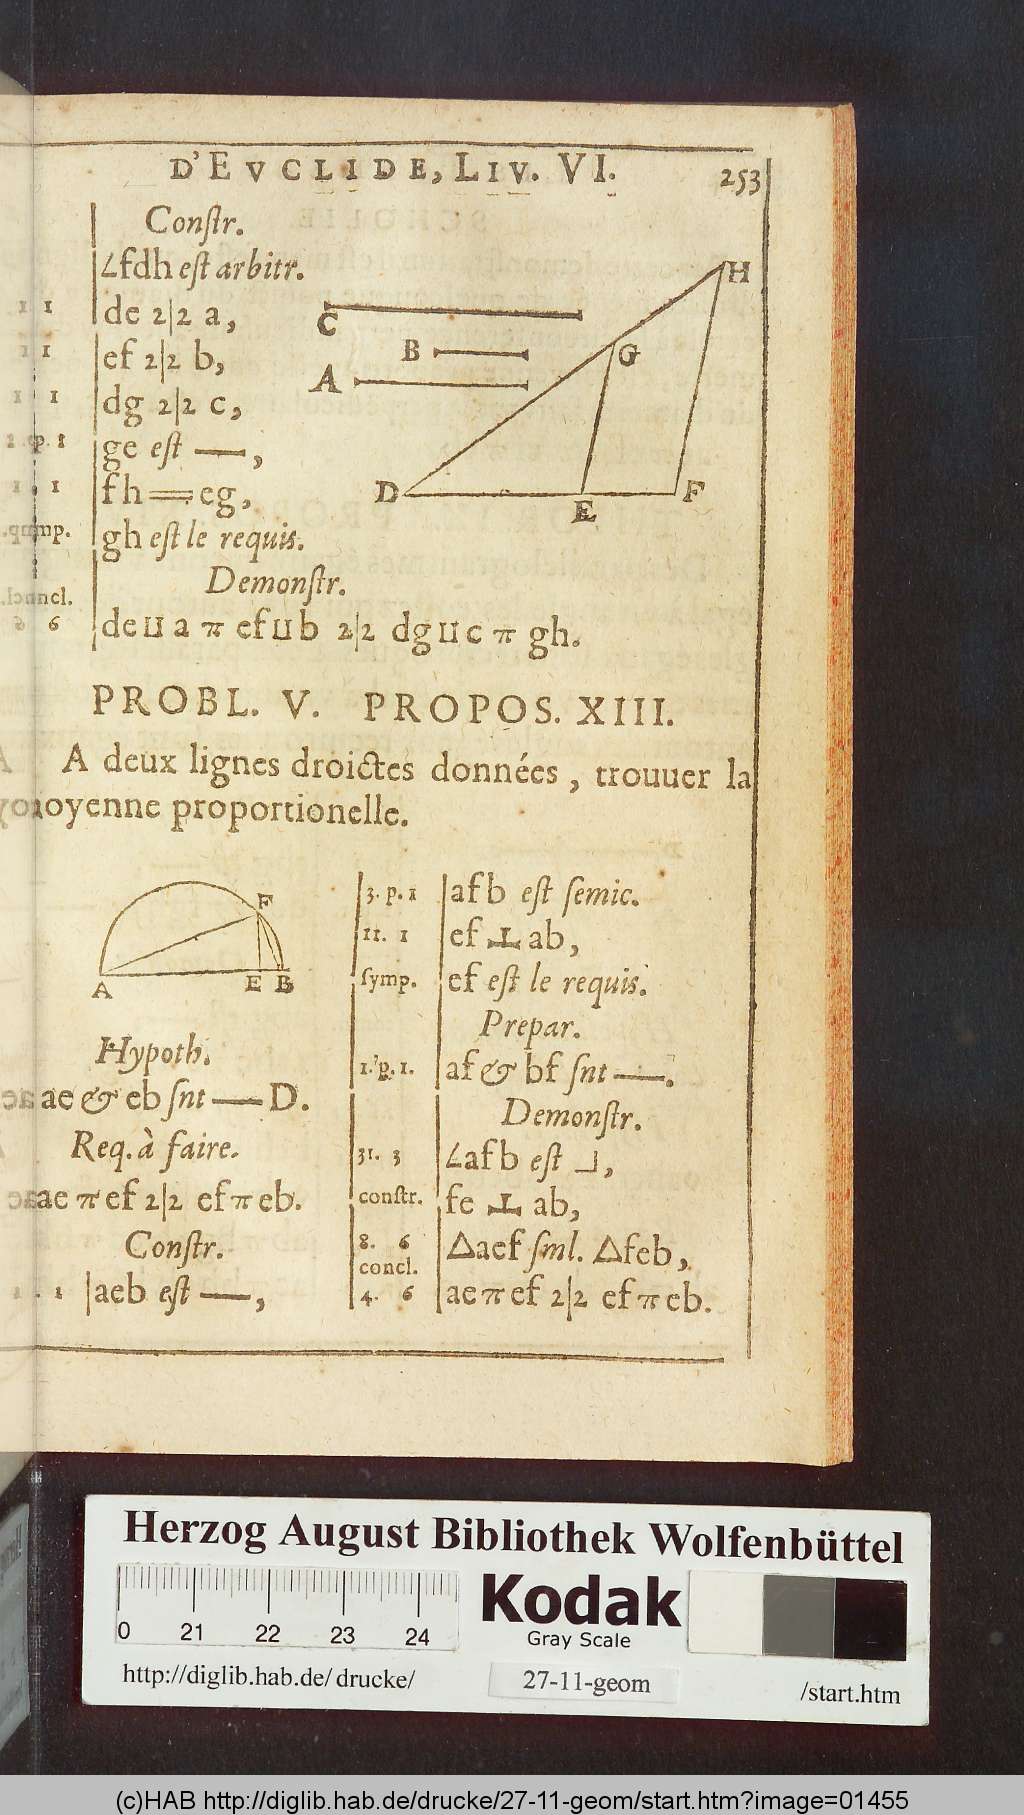 D'EVCLIDE, LIV. VI. 253
Conſtr.
∠fdh eſt arbitr.
1 1 de 2|2 a,
1 1 ef 2|2 b,
1 1 dg 2|2 c,
1. p. 1 ge eſt —,
1 1 fh = eg,
ſymp. gh eſt le requis.
Demonſtr.
concl.
6 de ⊔ a π ef ⊔ b 2|2 dg ⊔ c π gh.
C
B
A
H
G
D
E
F
PROBL. V. PROPOS. XIII.
A deux lignes droictes données, trouuer la
moyenne proportionelle.
F
A
E B
Hypoth.
ae & eb ſnt — D.
Req. à faire.
ae π ef 2|2 ef π eb.
Conſtr.
1 . 1 aeb eſt —,
3. p. 1 afb eſt ſemic.
11. 1 ef ⊥ ab,
ſymp. ef eſt le requis.
Prepar.
1. p. 1. af & bf ſnt —.
Demonſtr.
31. 3 ∠afb eſt ⅃,
conſtr. fe ⊥ ab,
8. 6 △aef ſml. △feb,
concl.
4. 6 ae π ef 2|2 ef π eb.
Herzog August Bibliothek Wolfenbüttel
0 21 22 23 24
Kodak
Gray Scale
http://diglib.hab.de/drucke/ 27-11-geom /start.htm
(c)HAB http://diglib.hab.de/drucke/27-11-geom/start.htm?image=01455